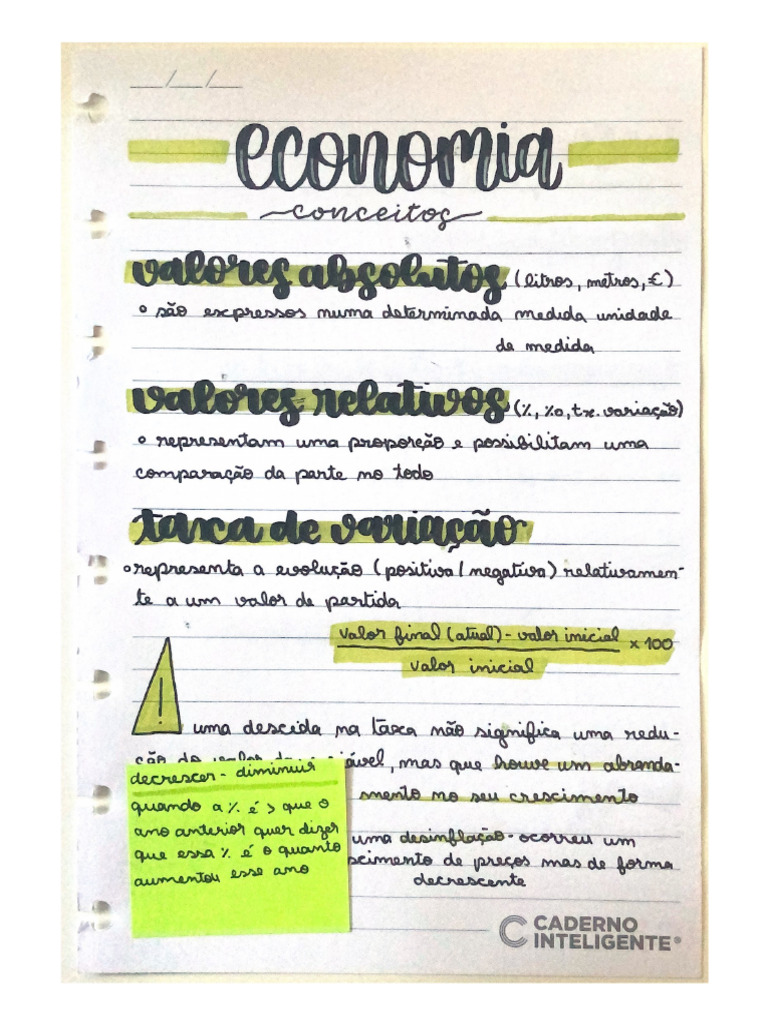 __/__/__
economia
conceitos
valores absolutos (litros, metros, €)
° são expressos numa determinada medida unidade
de medida
valores relativos (%, ‰, tx. variação)
° representam uma proporção e possibilitam uma
comparação da parte no todo
taxa de variação
° representa a evolução (positiva/negativa) relativamen-
te a um valor de partida
valor final (atual) - valor inicial x 100
valor inicial
! uma descida na taxa não significa uma redu-
ção do valor da variável, mas que houve um abranda-
mento no seu crescimento
uma desinflação - ocorreu um
scimento de preços mas de forma
decrescente
decrescer - diminuir
quando a % é > que o
ano anterior quer dizer
que essa % é o quanto
aumentou esse ano
CADERNO
INTELIGENTE®